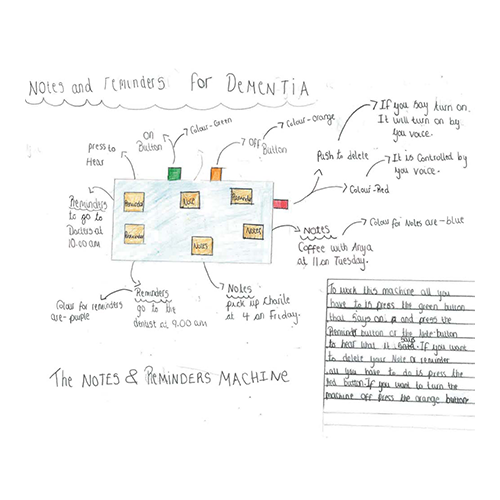 Notes and reminders for DEMENTIA
on
Button
Colour-Green
Colour-orange
OFF
Button
press to
Hear
If you say turn on.
It will turn on by
you voice.
Push to delete
It is Controlled by
you voice.
Colour-Red
Reminders
to go to
Doctors at
10:00 am
Reminder
Note
Reminder
Reminder
Notes
Notes
Notes
Colour for Notes are-blue
Coffee with Anya
at 11 on Tuesday.
Colour for reminders
are-purple
Reminders
go to the
dentist at 9:00 am
Notes
pick up Charlie
at 4 on Friday.
The NOTES & REMINDERS MACHINE
To work this machine all you
have to is press the green button
that says on. and press the
Reminder button or the Note button
to hear what it says. If you want
to delete your Note or reminder
all you have to do is press the
Red button. If you want to turn the
machine off press the orange button.